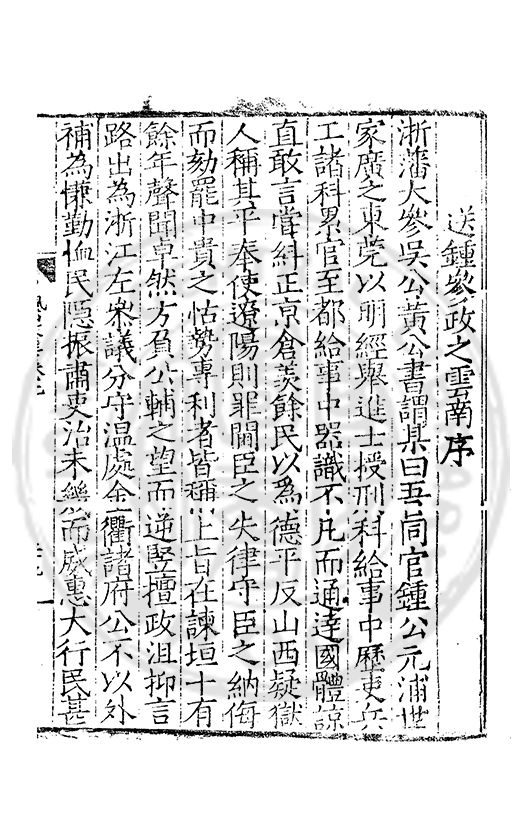 送鍾叅政之雲南序
浙藩大叅吳公黃公書謂某曰吾同官鍾公元溥世
家廣之東莞以明經舉進士授刑科給事中歷吏兵
工諸科累官至都給事中器識不凡而通達國體諒
直敢言嘗糾正京倉羨餘民以爲德平反山西疑獄
人稱其平奉使遼陽則罪閫臣之失律守臣之納侮
而劾罷中貴之怙勢專利者皆稱上旨在諫垣十有
餘年聲聞卓然方負公輔之望而逆竪擅政沮抑言
路出為浙江左叅議分守温處金衢諸府公不以外
補為慊勤恤民隠振肅吏治未㡬而威惠大行民甚